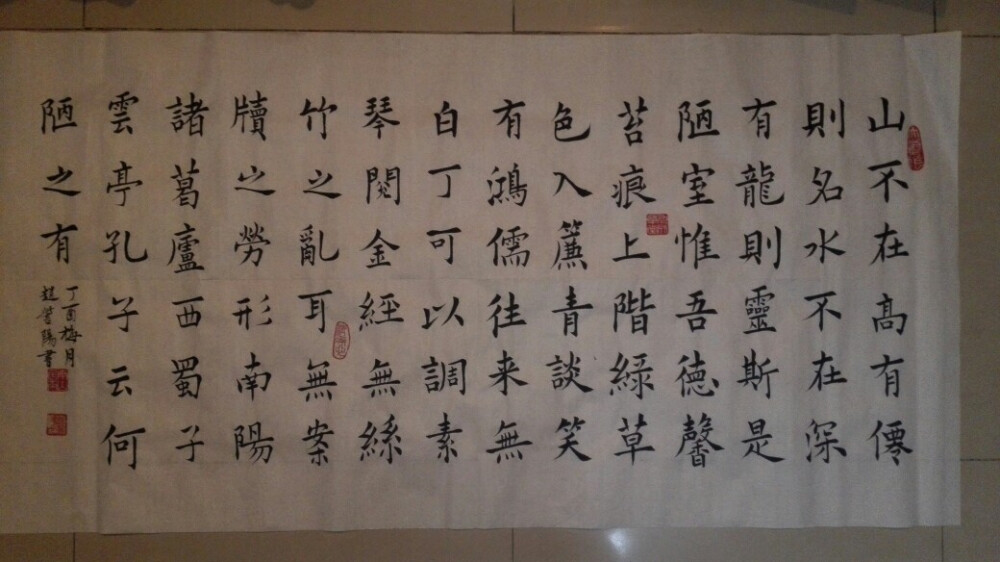 山不在髙有僊
則名水不在深
有龍則靈斯是
陋室惟吾德馨
苔痕上階綠草
色入簾青談笑
有鴻儒往来無
白丁可以調素
琴閱金經無絲
竹之亂耳無案
牘之勞形南陽
諸葛廬西蜀子
雲亭孔子云何
陋之有
丁酉梅月
陽書